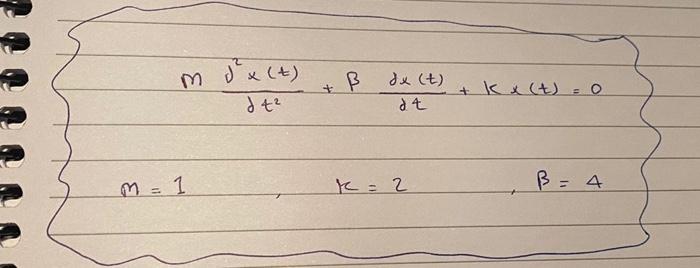 m d²x(t)/dt² + β dx(t)/dt + k x(t) = 0
m = 1 , k = 2 , β = 4